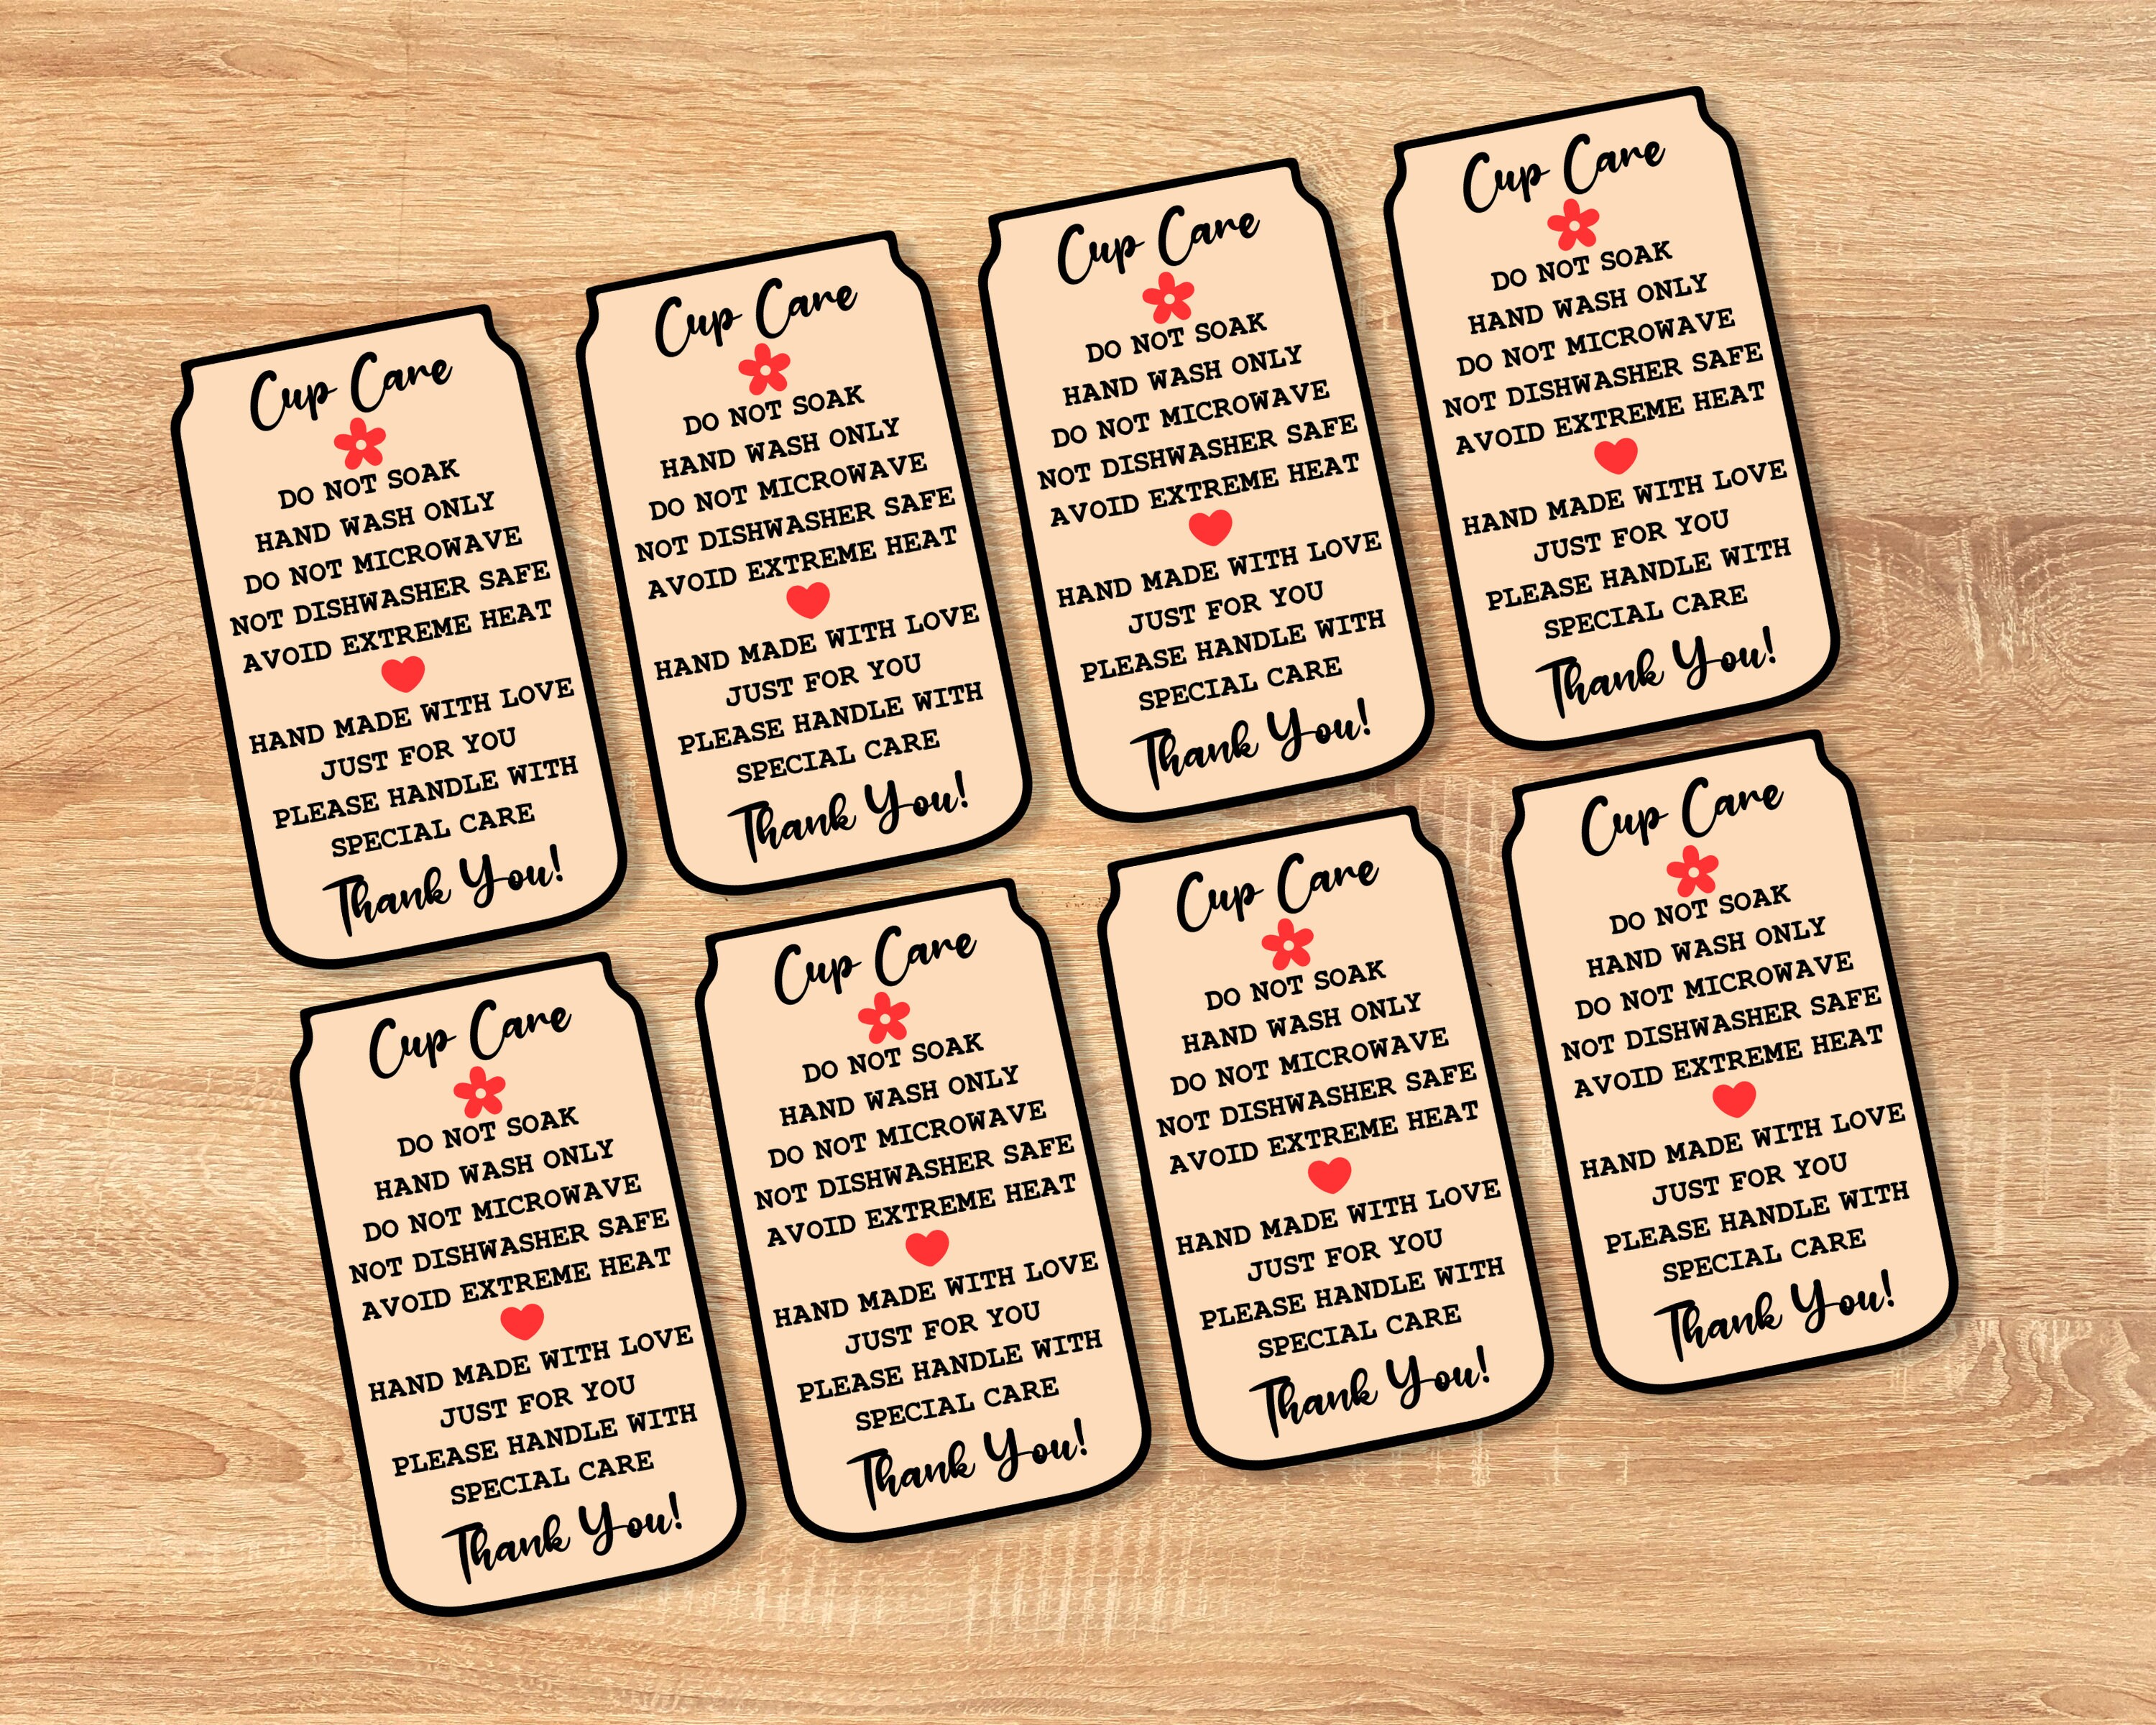 Cup Care
DO NOT SOAK
HAND WASH ONLY
DO NOT MICROWAVE
NOT DISHWASHER SAFE
AVOID EXTREME HEAT
HAND MADE WITH LOVE
JUST FOR YOU
PLEASE HANDLE WITH
SPECIAL CARE
Thank You!
Cup Care
DO NOT SOAK
HAND WASH ONLY
DO NOT MICROWAVE
NOT DISHWASHER SAFE
AVOID EXTREME HEAT
HAND MADE WITH LOVE
JUST FOR YOU
PLEASE HANDLE WITH
SPECIAL CARE
Thank You!
Cup Care
DO NOT SOAK
HAND WASH ONLY
DO NOT MICROWAVE
NOT DISHWASHER SAFE
AVOID EXTREME HEAT
HAND MADE WITH LOVE
JUST FOR YOU
PLEASE HANDLE WITH
SPECIAL CARE
Thank You!
Cup Care
DO NOT SOAK
HAND WASH ONLY
DO NOT MICROWAVE
NOT DISHWASHER SAFE
AVOID EXTREME HEAT
HAND MADE WITH LOVE
JUST FOR YOU
PLEASE HANDLE WITH
SPECIAL CARE
Thank You!
Cup Care
DO NOT SOAK
HAND WASH ONLY
DO NOT MICROWAVE
NOT DISHWASHER SAFE
AVOID EXTREME HEAT
HAND MADE WITH LOVE
JUST FOR YOU
PLEASE HANDLE WITH
SPECIAL CARE
Thank You!
Cup Care
DO NOT SOAK
HAND WASH ONLY
DO NOT MICROWAVE
NOT DISHWASHER SAFE
AVOID EXTREME HEAT
HAND MADE WITH LOVE
JUST FOR YOU
PLEASE HANDLE WITH
SPECIAL CARE
Thank You!
Cup Care
DO NOT SOAK
HAND WASH ONLY
DO NOT MICROWAVE
NOT DISHWASHER SAFE
AVOID EXTREME HEAT
HAND MADE WITH LOVE
JUST FOR YOU
PLEASE HANDLE WITH
SPECIAL CARE
Thank You!
Cup Care
DO NOT SOAK
HAND WASH ONLY
DO NOT MICROWAVE
NOT DISHWASHER SAFE
AVOID EXTREME HEAT
HAND MADE WITH LOVE
JUST FOR YOU
PLEASE HANDLE WITH
SPECIAL CARE
Thank You!